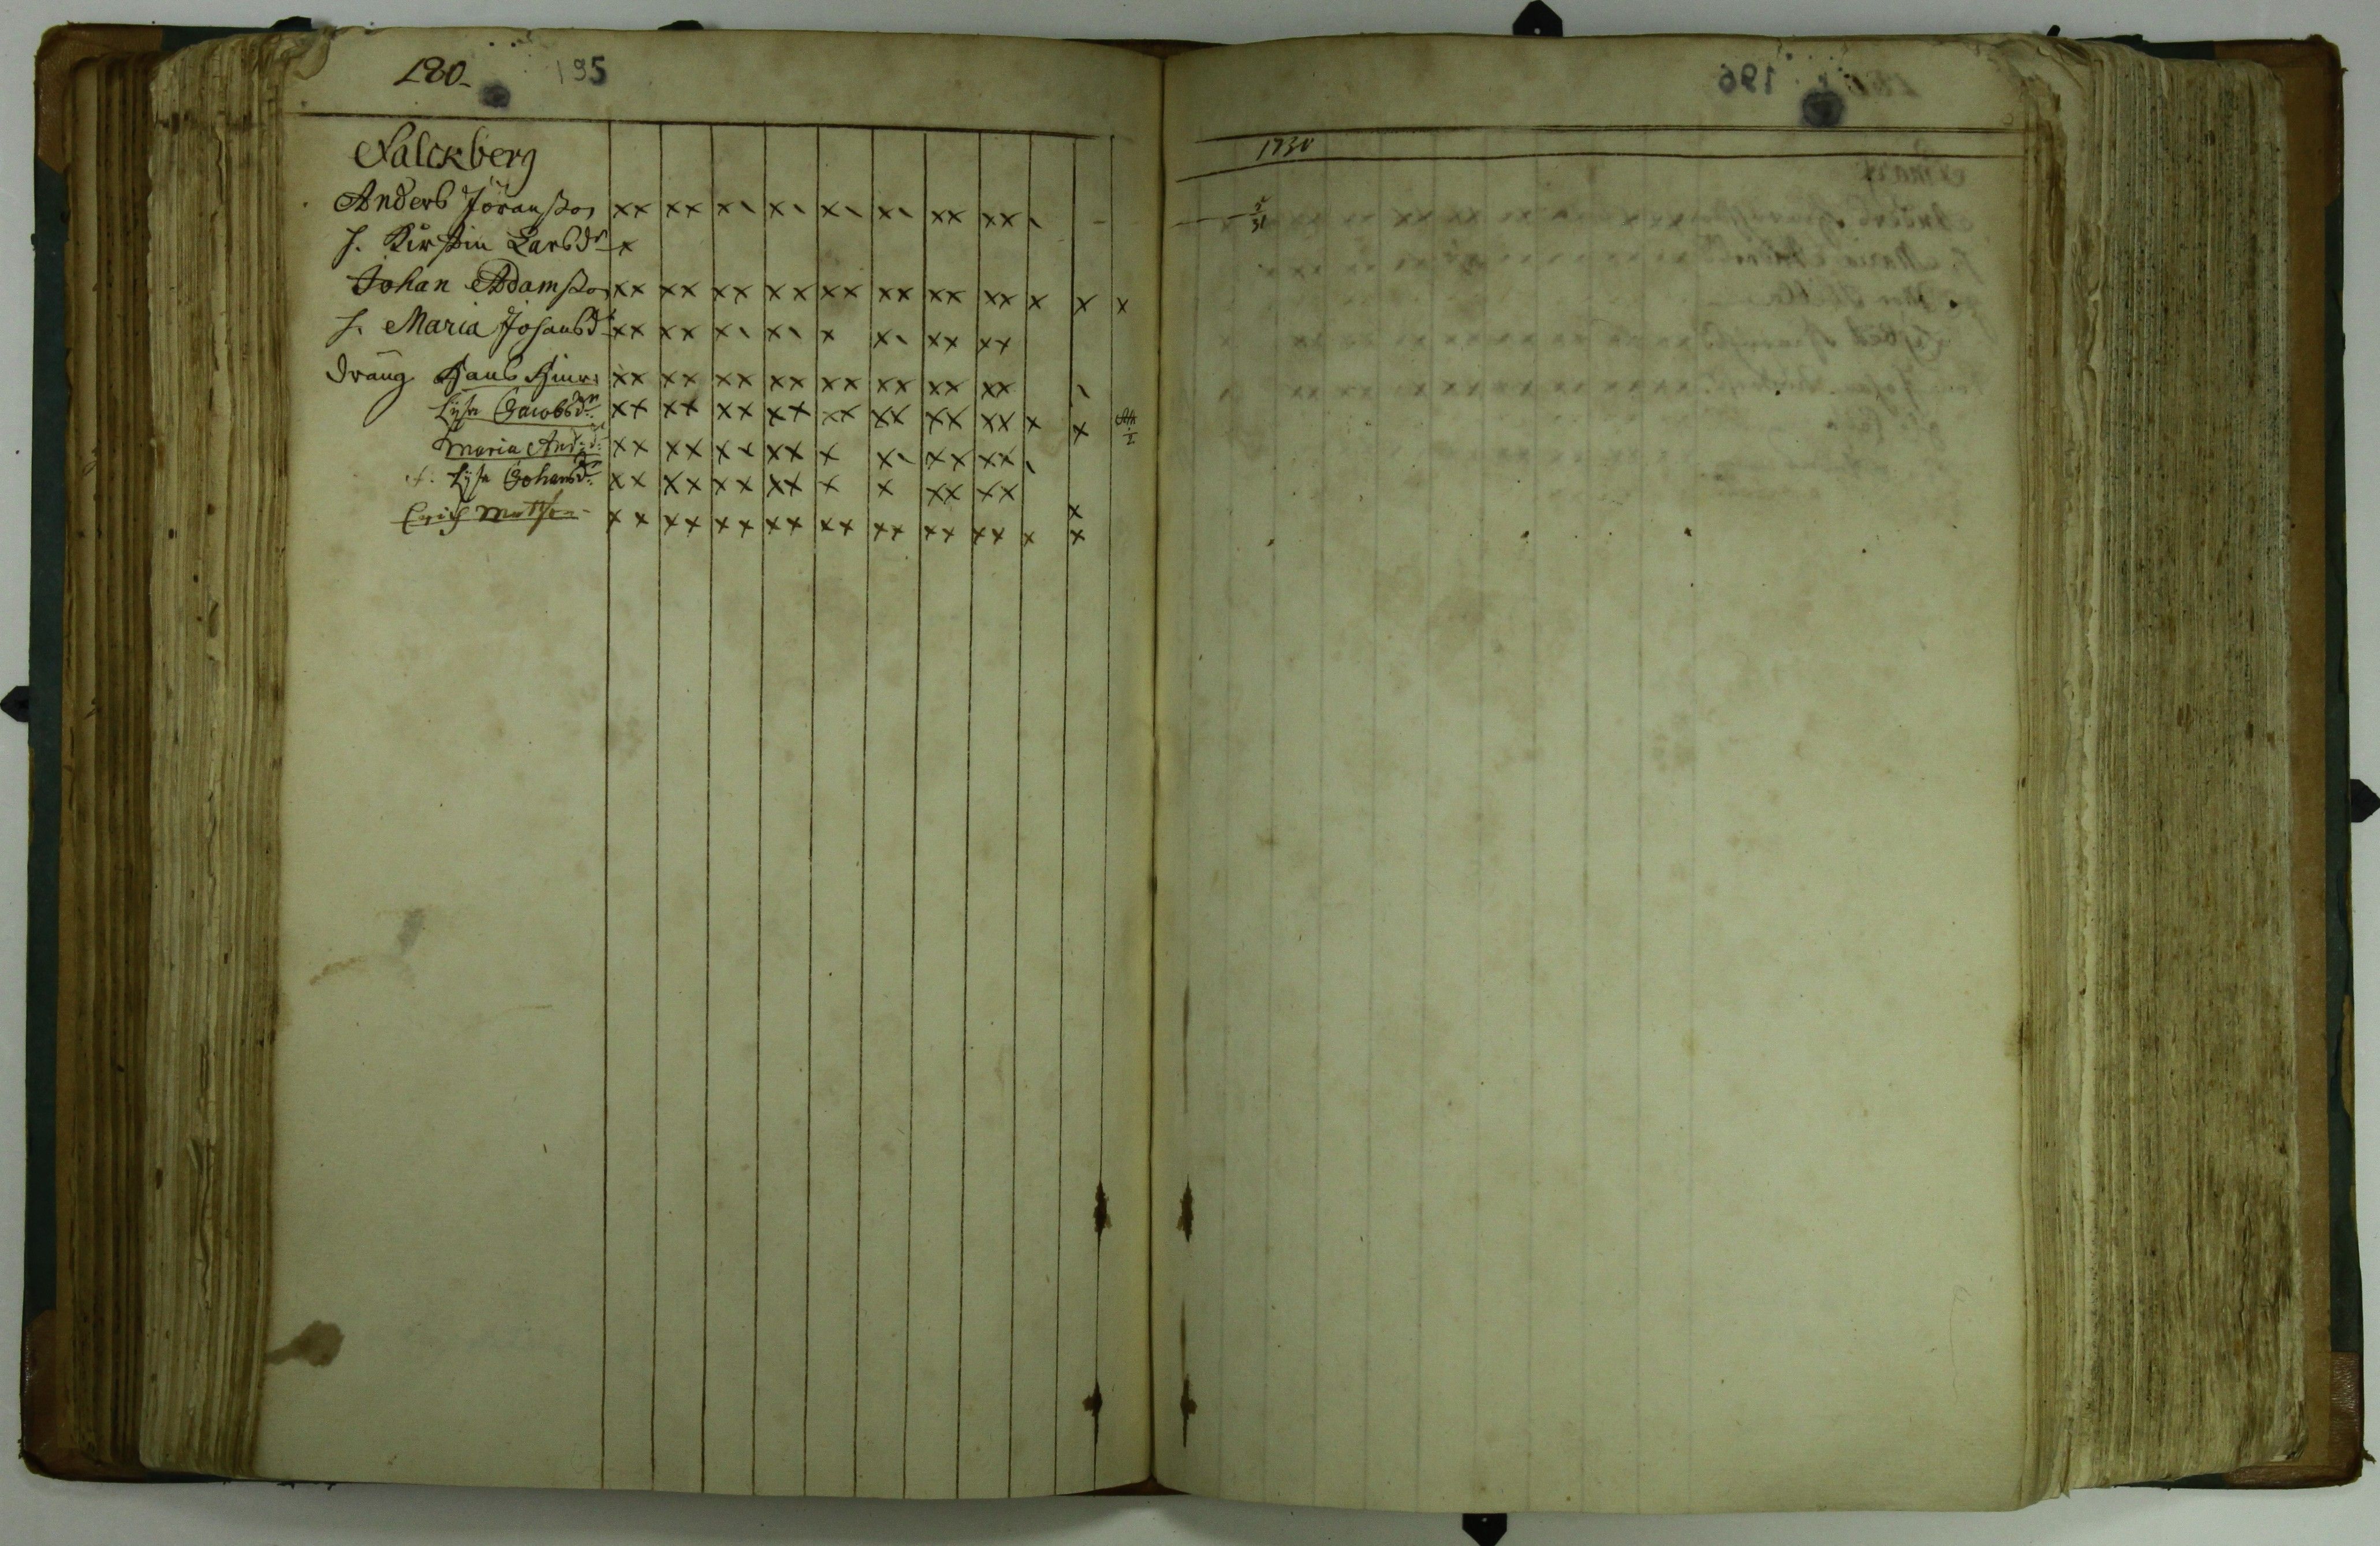 180. 195
Falckberg
Anders Jöransson xx xx x- x- x- x- xx xx -
h. Kirstin Larsdr x
Johan Adamsson xx xx xx xx xx xx xx xx x x x
h. Maria Johansdr xx xx x- x- x x- xx xx
dräng Hans Hinr: xx xx xx xx xx xx xx xx -
Lysa Jacobsdr xx xx xx xx xx xx xx xx x x
Maria And:dr xx xx xx xx x x- xx xx -
h. Lysa Johansdr xx xx xx xx x x xx xx x
Erich Matsson xx xx xx xx xx xx xx xx x x
196
1730
5/31